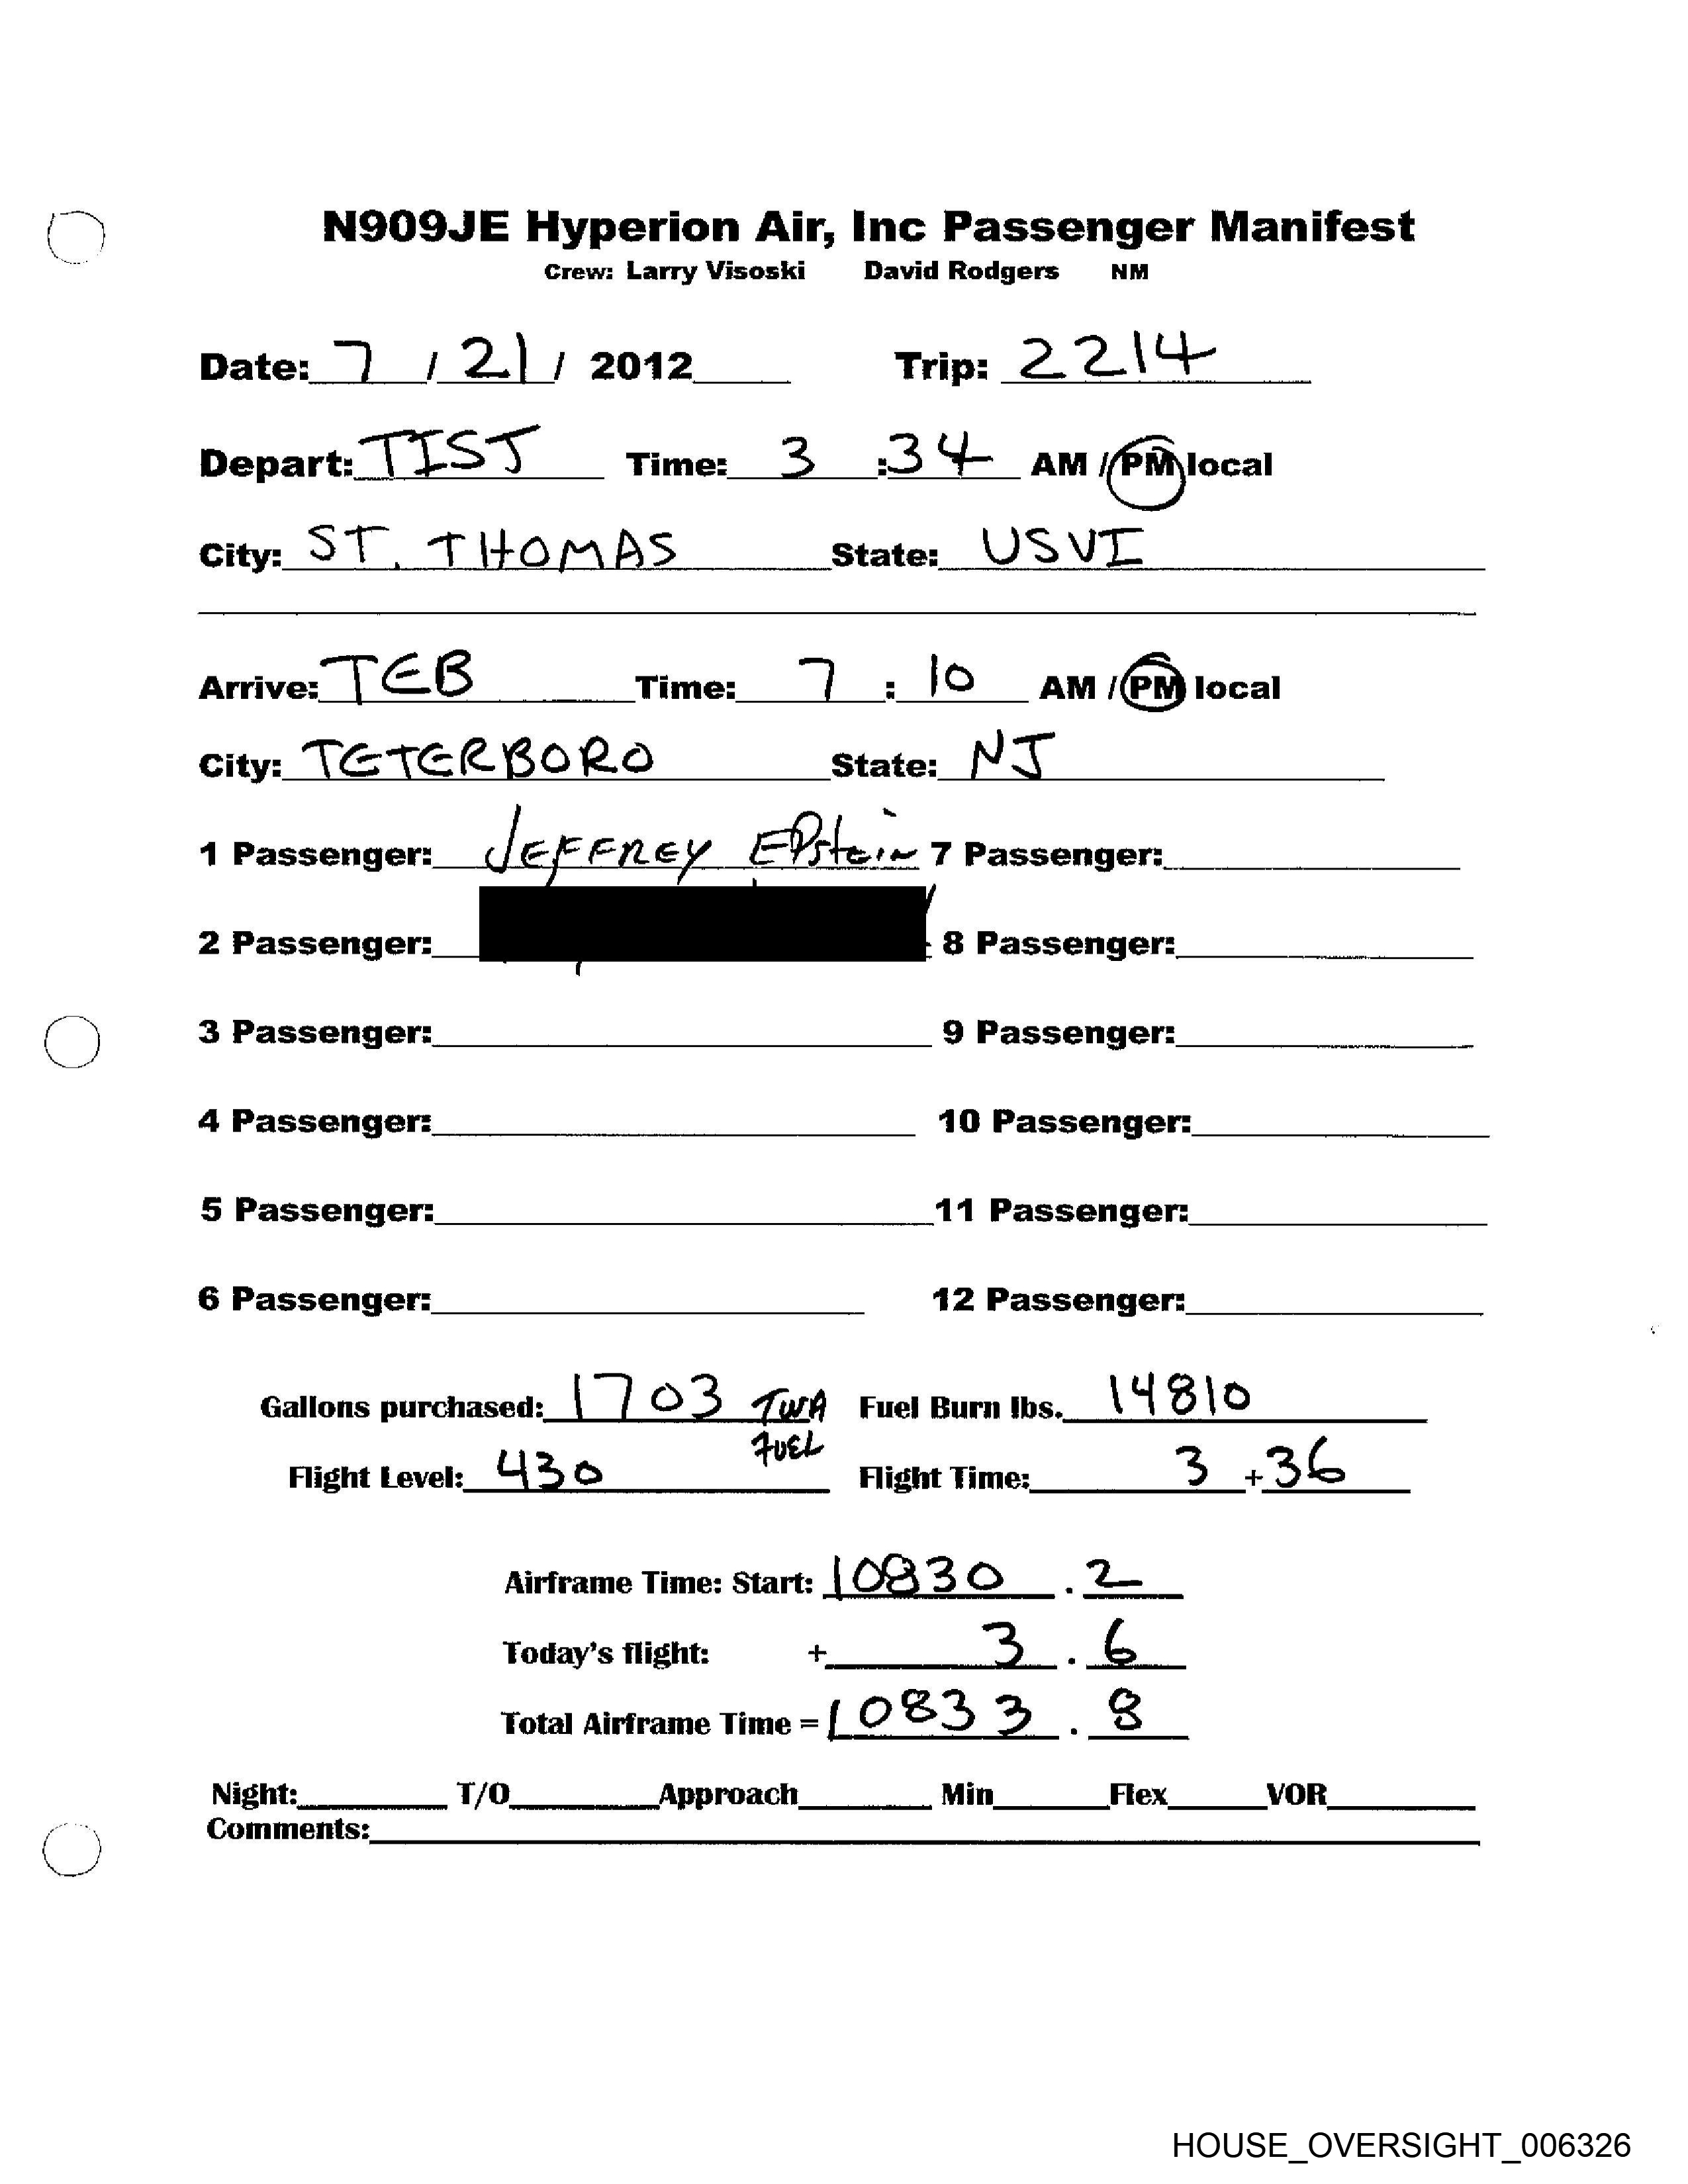 N909JE Hyperion Air, Inc Passenger Manifest
Crew: Larry Visoski David Rodgers NM
Date: 7 / 21 / 2012 Trip: 2214
Depart: TIST Time: 3 :34 AM / PM local
City: ST. THOMAS State: USVI
Arrive: TEB Time: 7 : 10 AM / PM local
City: TETERBORO State: NJ
1 Passenger: JEFFREY EPstein 7 Passenger:
2 Passenger: 8 Passenger:
3 Passenger: 9 Passenger:
4 Passenger: 10 Passenger:
5 Passenger: 11 Passenger:
6 Passenger: 12 Passenger:
Gallons purchased: 1703 TWA FUEL Fuel Burn lbs. 14810
Flight Level: 430 Flight Time: 3 +36
Airframe Time: Start: 10830 . 2
Today's flight: + 3 . 6
Total Airframe Time = 10833 . 8
Night: T/O Approach Min Flex VOR
Comments:
HOUSE_OVERSIGHT_006326